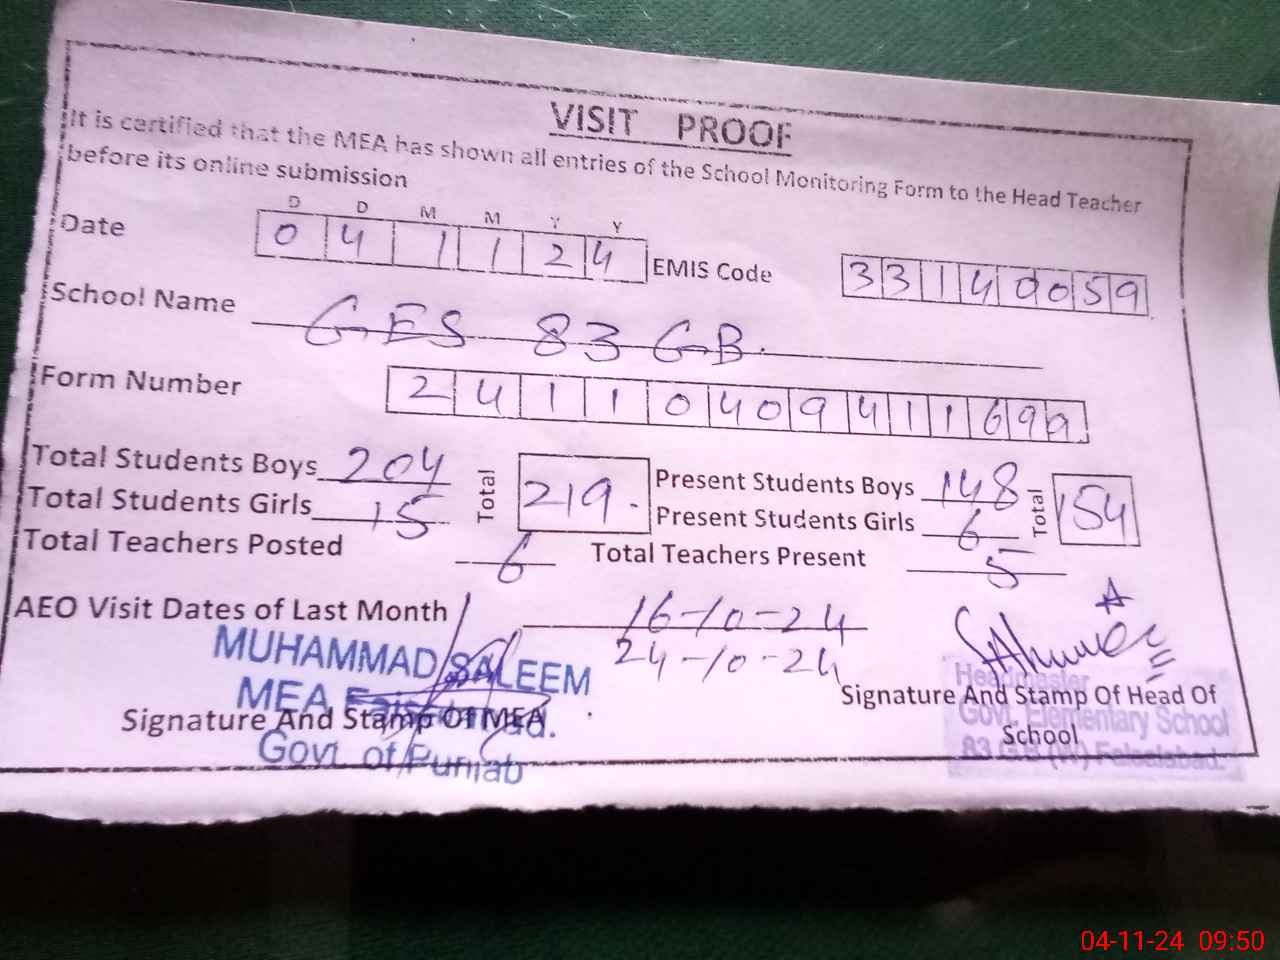 VISIT PROOF
It is certified that the MEA has shown all entries of the School Monitoring Form to the Head Teacher
before its online submission
D D M M Y Y
Date 0 4 1 1 2 4 EMIS Code 3 3 1 4 0 0 5 9
School Name GES 83 GB.
Form Number 2 4 1 1 0 4 0 9 4 1 1 6 9 9
Total Students Boys 204 Total 219 Present Students Boys 148 Total 154
Total Students Girls 15 Present Students Girls 6
Total Teachers Posted 6 Total Teachers Present 5
AEO Visit Dates of Last Month 16-10-24
24-10-24
MUHAMMAD SALEEM
MEA Faisalabad.
Govt. of Punjab
Signature And Stamp Of MEA
Headmaster
Govt. Elementary School
83 GB
Signature And Stamp Of Head Of
School
04-11-24 09:50